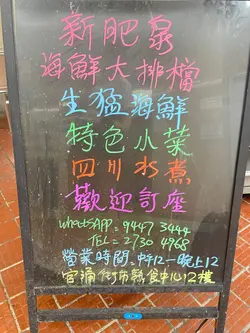 新肥泉
海鮮大排檔
生猛海鮮
特色小菜
四川水煮
歡迎訂座
WhatsApp = 9447 3444
TEL = 2730 4968
營業時間、中午12一晚上12
宮涌街市熟食中心2樓